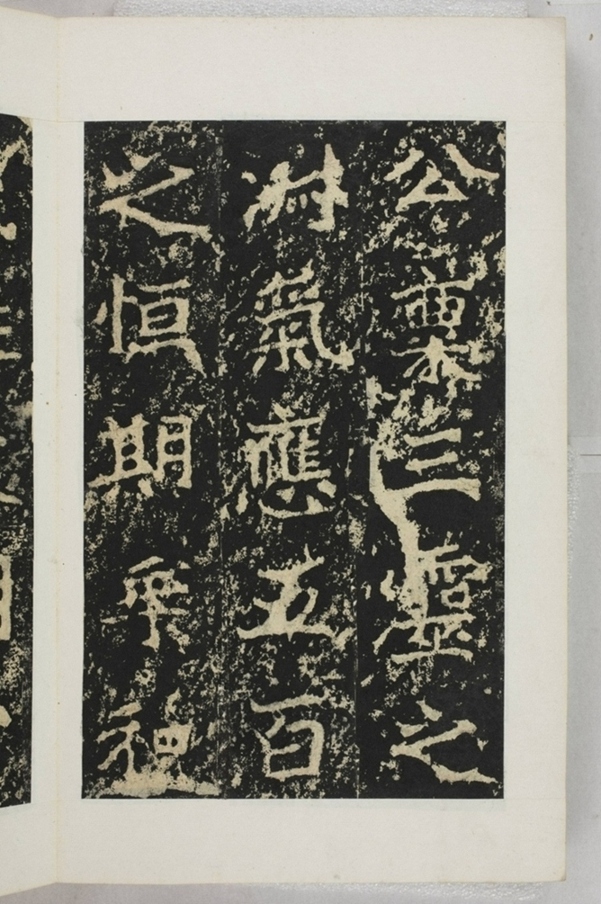 公稟三靈之
淑氣應五百
之恒期乘和